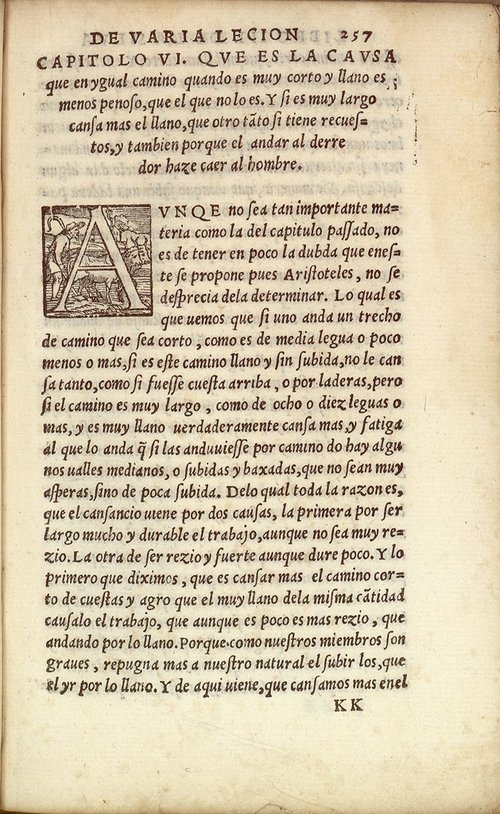 DE VARIA LECION 257
CAPITOLO VI. QVE ES LA CAVSA
que en ygual camino quando es muy corto y llano es
menos penoso, que el que no lo es. Y si es muy largo
cansa mas el llano, que otro tãto si tiene recues=
tos, y tambien porque el andar al derre
dor haze caer al hombre.
AVNQE no sea tan importante ma=
teria como la del capitulo passado, no
es de tener en poco la dubda que enes=
te se propone pues Aristoteles, no se
desprecia dela determinar. Lo qual es
que uemos que si uno anda un trecho
de camino que sea corto, como es de media legua o poco
menos o mas, si es este camino llano y sin subida, no le can
sa tanto, como si fuesse cuesta arriba, o por laderas, pero
si el camino es muy largo, como de ocho o diez leguas o
mas, y es muy llano uerdaderamente cansa mas, y fatiga
al que lo anda q̃ si las anduuiesse por camino do hay algu
nos ualles medianos, o subidas y baxadas, que no sean muy
asperas, sino de poca subida. Delo qual toda la razon es,
que el cansancio uiene por dos causas, la primera por ser
largo mucho y durable el trabajo, aunque no sea muy re=
zio. La otra de ser rezio y fuerte aunque dure poco. Y lo
primero que diximos, que es cansar mas el camino cor=
to de cuestas y agro que el muy llano dela misma cãtidad
causalo el trabajo, que aunque es poco es mas rezio, que
andando por lo llano. Porque como nuestros miembros son
graues, repugna mas a nuestro natural el subir los, que
el yr por lo llano. Y de aqui uiene, que cansamos mas en el
KK